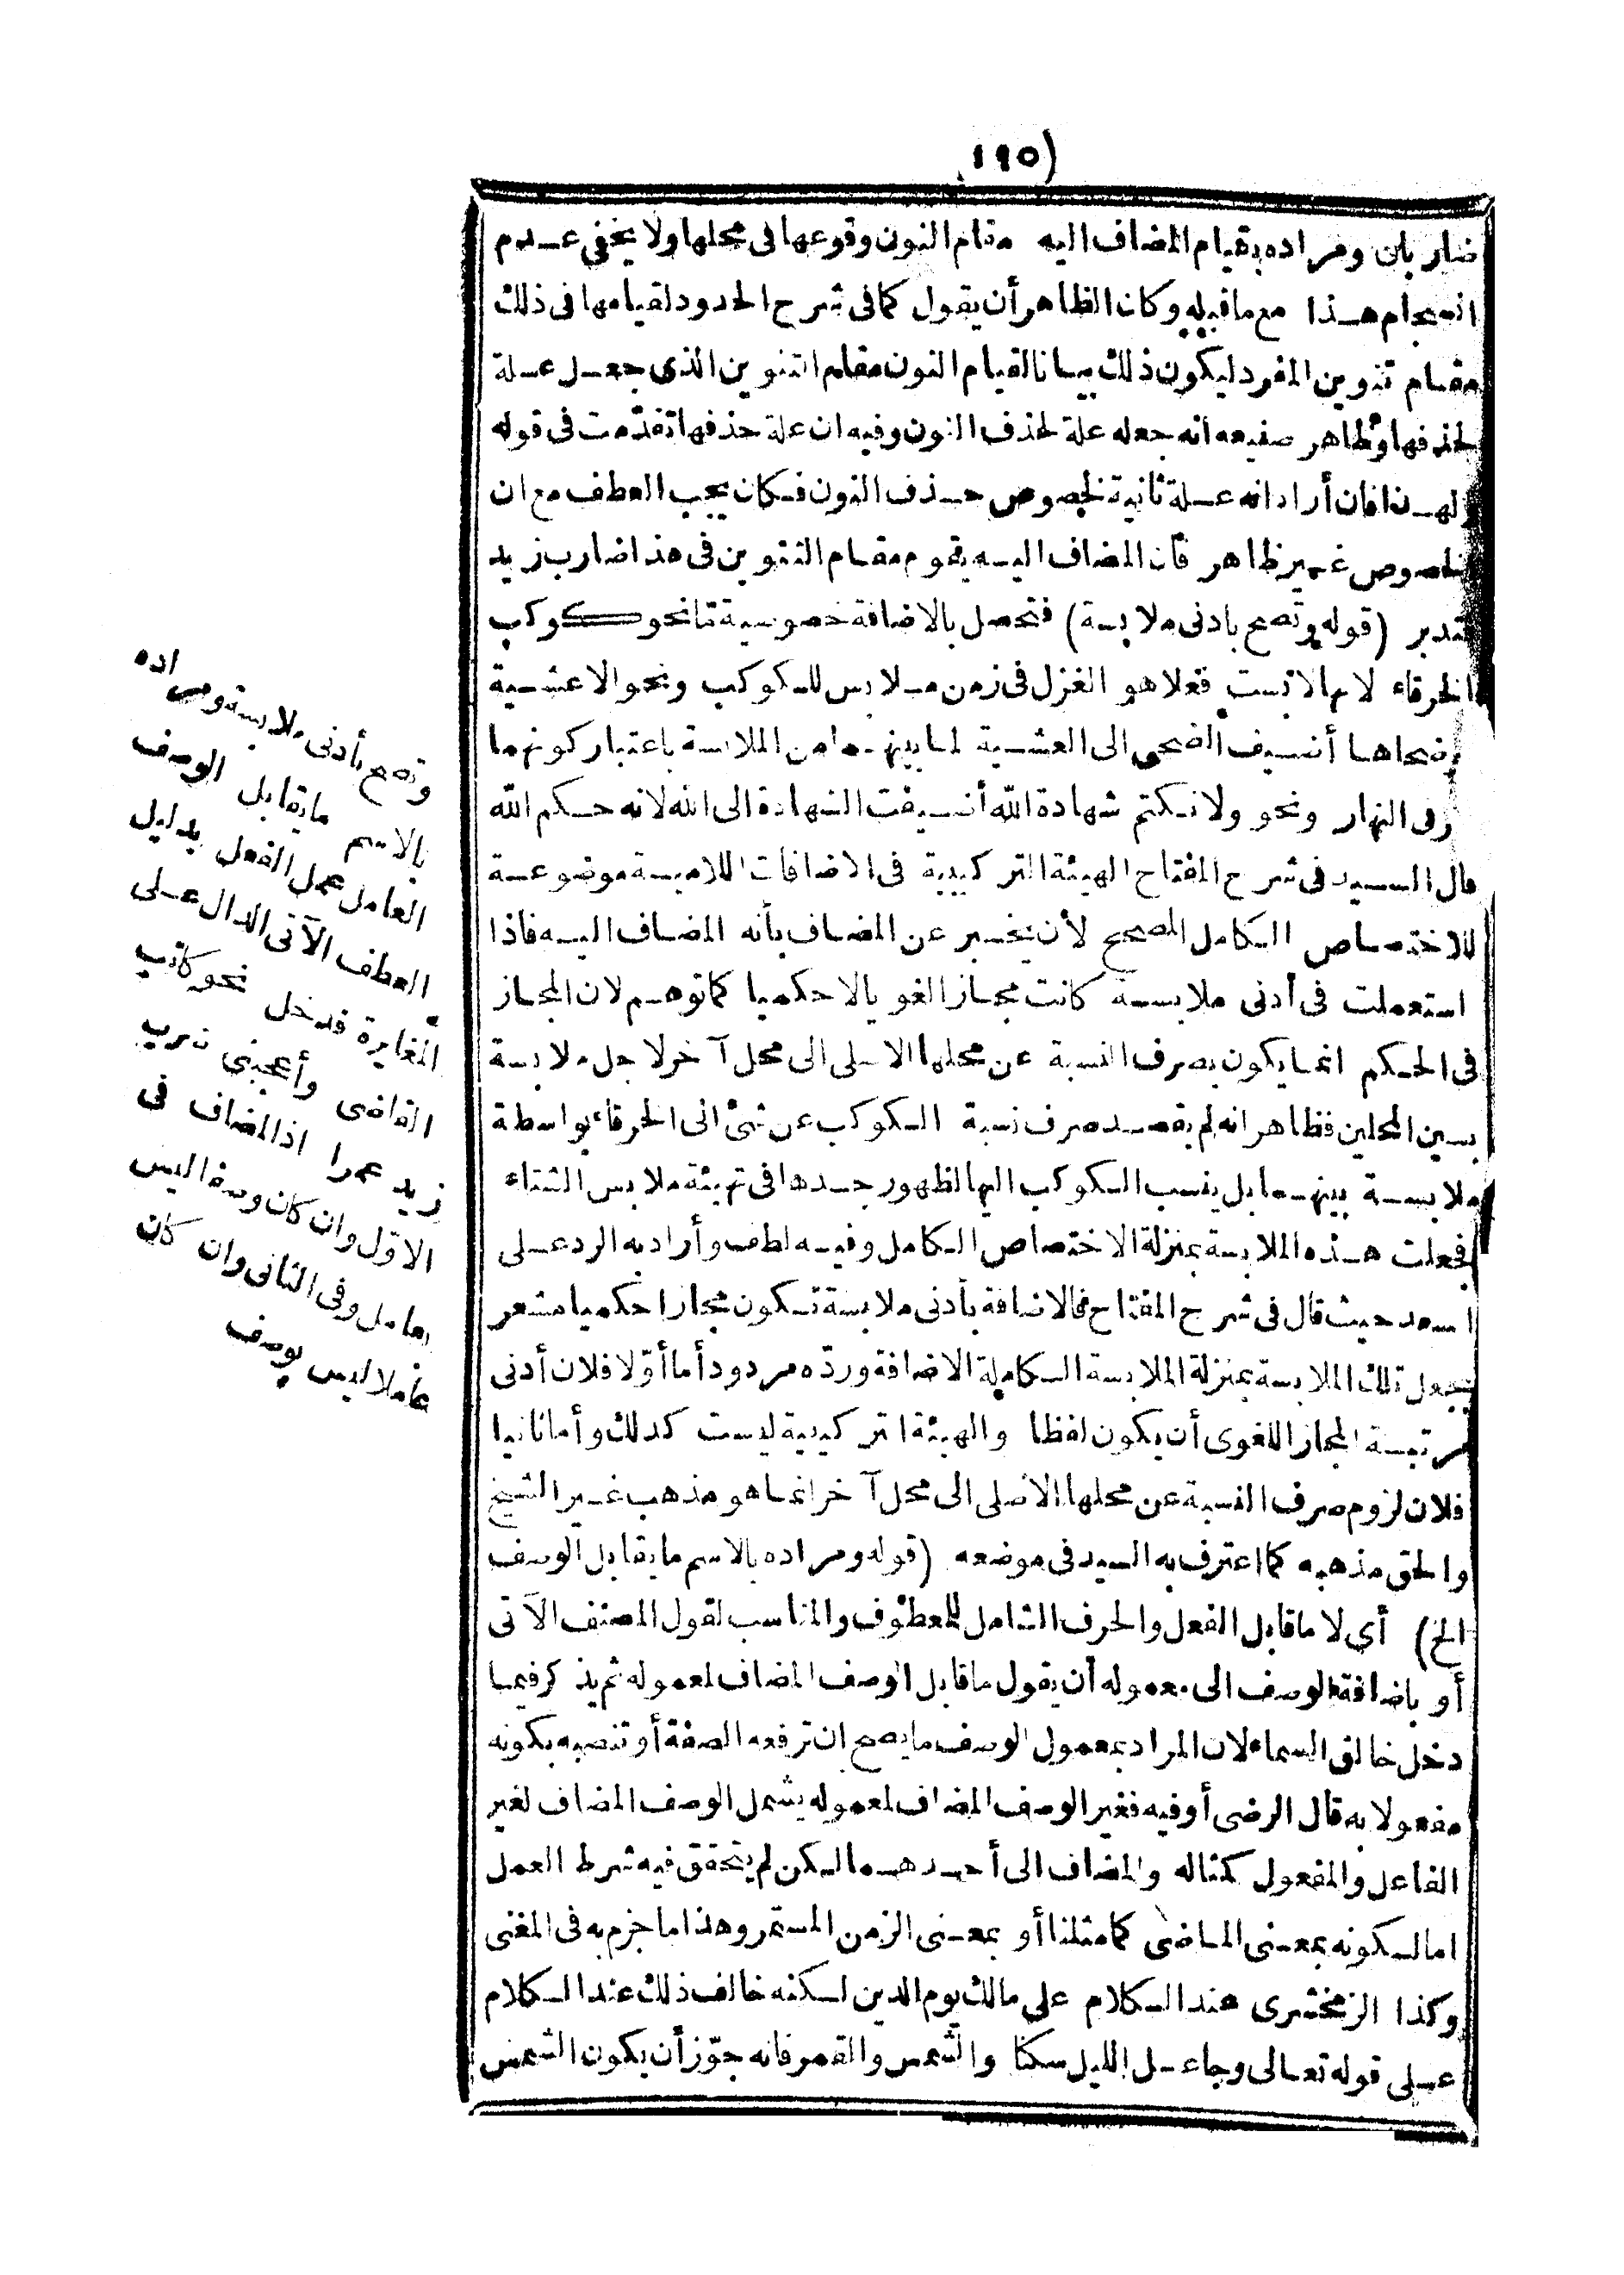 (١٩٥
ضاربان ومراده بقيام المضاف اليه مقام النون وقوعها في محلها ولا يخفى عدم
انسجام هذا مع ما قبله وكان الظاهر أن يقول كما في شرح الحدود لقيامها في ذلك
مقام تنوين المفرد ليكون ذلك بيانا لقيام النون مقام التنوين الذي جعل علة
لحذفها وظاهر صنيعه أنه جعله علة لحذف النون وفيه ان علة حذفها تقدّمت في قوله
ولهذا فان أراد انه علة ثانية لخصوص حذف النون فكان يجب العطف مع ان
الخصوص غير ظاهر فان المضاف اليه يقوم مقام التنوين في هذا ضارب زيد
فتدبر (قوله وتصح بادنى ملابسة) فتحصل بالاضافة خصوصية تما نحو كوكب
الخرقاء لانها لابست فعلا هو الغزل في زمن ملابس للكوكب ونحو الا عشية
أو ضحاها أضيف الضحى الى العشية لما بينهما من الملابسة باعتبار كونهما
في النهار ونحو ولا نكتم شهادة الله أضيفت الشهادة الى الله لانه حكم الله
قال السيد في شرح المفتاح الهيئة التركيبية في الاضافات اللامية موضوعة
للاختصاص الكامل المصحح لأن يخبر عن المضاف بأنه المضاف اليه فاذا
استعملت في أدنى ملابسة كانت مجازا لغويا لا حكميا كما توهم لان المجاز
في الحكم انما يكون بصرف النسبة عن محلها الاصلى الى محل آخر لاجل ملابسة
بين المحلين فظاهر انه لم يقصد صرف نسبة الكوكب عن شئ الى الخرقاء بواسطة
ملابسة بينهما بل ينسب الكوكب اليها لظهور جدها في تهيئة ملابس الشتاء
فجعلت هذه الملابسة بمنزلة الاختصاص الكامل وفيه لطف وأراد به الرد على
السعد حيث قال في شرح المفتاح فالاضافة بأدنى ملابسة تكون مجازا حكميا مشعر
بجعل تلك الملابسة بمنزلة الملابسة الكاملة الاضافة وردّه مردود أما أوّلا فلان أدنى
مرتبة المجاز اللغوى أن يكون لفظا والهيئة التركيبية ليست كذلك وأما ثانيا
فلان لزوم صرف النسبة عن محلها الاصلى الى محل آخر انما هو مذهب غير الشيخ
والحق مذهبه كما اعترف به السيد في موضعه (قوله ومراده بالاسم ما يقابل الوصف
الخ) أي لا ما قابل الفعل والحرف الشامل للمعطوف والمناسب لقول المصنف الآتى
أو باضافة الوصف الى معموله أن يقول ما قابل الوصف المضاف لمعموله ثم يذكر فيما
دخل خالق السماء لان المراد بمعمول الوصف ما يصح ان ترفعه الصفة أو تنصبه بكونه
مفعولا به قال الرضى أو فيه فغير الوصف المضاف لمعموله يشمل الوصف المضاف لغير
الفاعل والمفعول كمثاله والمضاف الى أحدهما لكن لم يتحقق فيه شرط العمل
اما لكونه بمعنى الماضى كما مثلنا أو بمعنى الزمن المستمر وهذا ما جزم به في المغنى
وكذا الزمخشرى عند الكلام على مالك يوم الدين لكنه خالف ذلك عند الكلام
على قوله تعالى وجاعل الليل سكنا والشمس والقمر فانه جوّز أن يكون الشمس
وتصح بأدنى ملابسة ومراده
بالاسم ما يقابل الوصف
العامل عمل الفعل بدليل
العطف الآتى الدال على
المغايرة فدخل نحو كاتب
القاضى وأعجبنى ضرب
زيد عمرا اذ المضاف في
الاوّل وان كان وصفا ليس
بعامل وفى الثانى وان كان
عاملا ليس بوصف